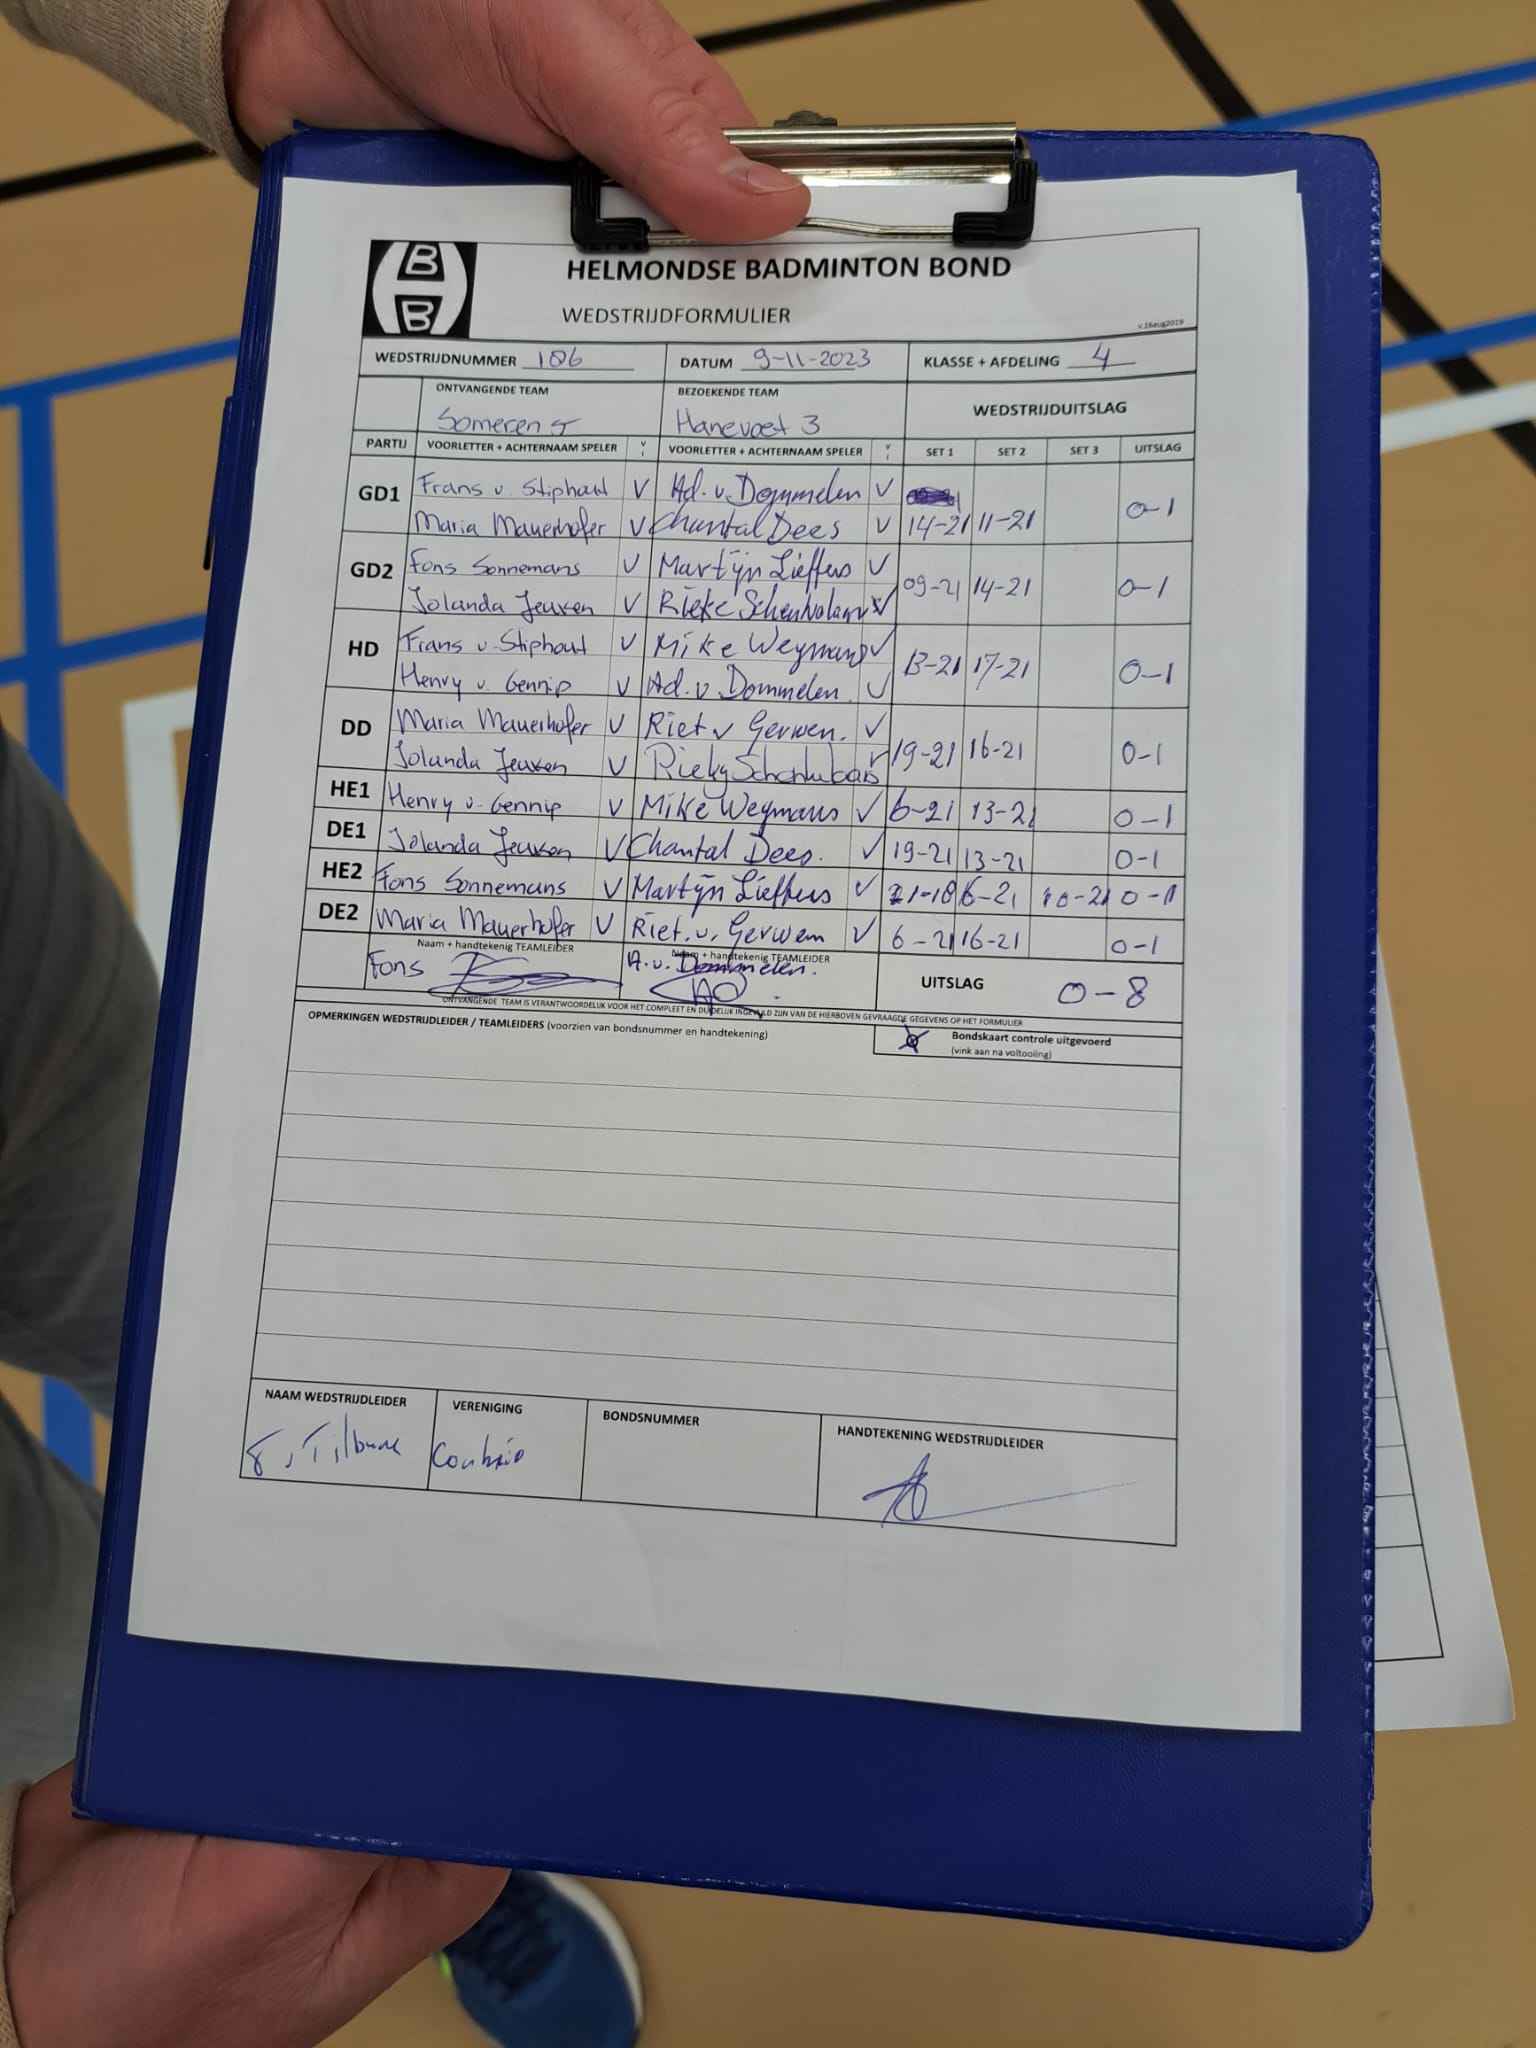 HELMONDSE BADMINTON BOND
WEDSTRIJDFORMULIER
v.16aug2019
WEDSTRIJDNUMMER 186 DATUM 9-11-2023 KLASSE + AFDELING 4
ONTVANGENDE TEAM BEZOEKENDE TEAM WEDSTRIJDUITSLAG
Someren 5 Hanevoet 3
PARTIJ VOORLETTER + ACHTERNAAM SPELER V VOORLETTER + ACHTERNAAM SPELER V SET 1 SET 2 SET 3 UITSLAG
GD1 Frans v. Stiphout V Ad. v. Dommelen V
Maria Mauerhofer V Chantal Dees V 14-21 11-21 0-1
GD2 Fons Sonnemans V Martijn Lieffers V
Jolanda Jeuken V Rieke 09-21 14-21 0-1
HD Frans v. Stiphout V Mike Weymans V
Henry v. Gennip V Ad. v. Dommelen. V 13-21 17-21 0-1
DD Maria Mauerhofer V Riet v Gerwen. V
Jolanda Jeuken V Rieky 19-21 16-21 0-1
HE1 Henry v. Gennip V Mike Weymans V 6-21 13-21 0-1
DE1 Jolanda Jeuken V Chantal Dees. V 19-21 13-21 0-1
HE2 Fons Sonnemans V Martijn Lieffers V 21-18 6-21 10-21 0-1
DE2 Maria Mauerhofer V Riet. v. Gerwen V 6-21 16-21 0-1
Naam + handtekenig TEAMLEIDER Naam + handtekenig TEAMLEIDER
Fons A. v. Dommelen. UITSLAG 0-8
ONTVANGENDE TEAM IS VERANTWOORDELIJK VOOR HET COMPLEET EN DUIDELIJK INGEVULD ZIJN VAN DE HIERBOVEN GEVRAAGDE GEGEVENS OP HET FORMULIER
OPMERKINGEN WEDSTRIJDLEIDER / TEAMLEIDERS (voorzien van bondsnummer en handtekening) Bondskaart controle uitgevoerd
(vink aan na voltooiing)
NAAM WEDSTRIJDLEIDER VERENIGING BONDSNUMMER HANDTEKENING WEDSTRIJDLEIDER